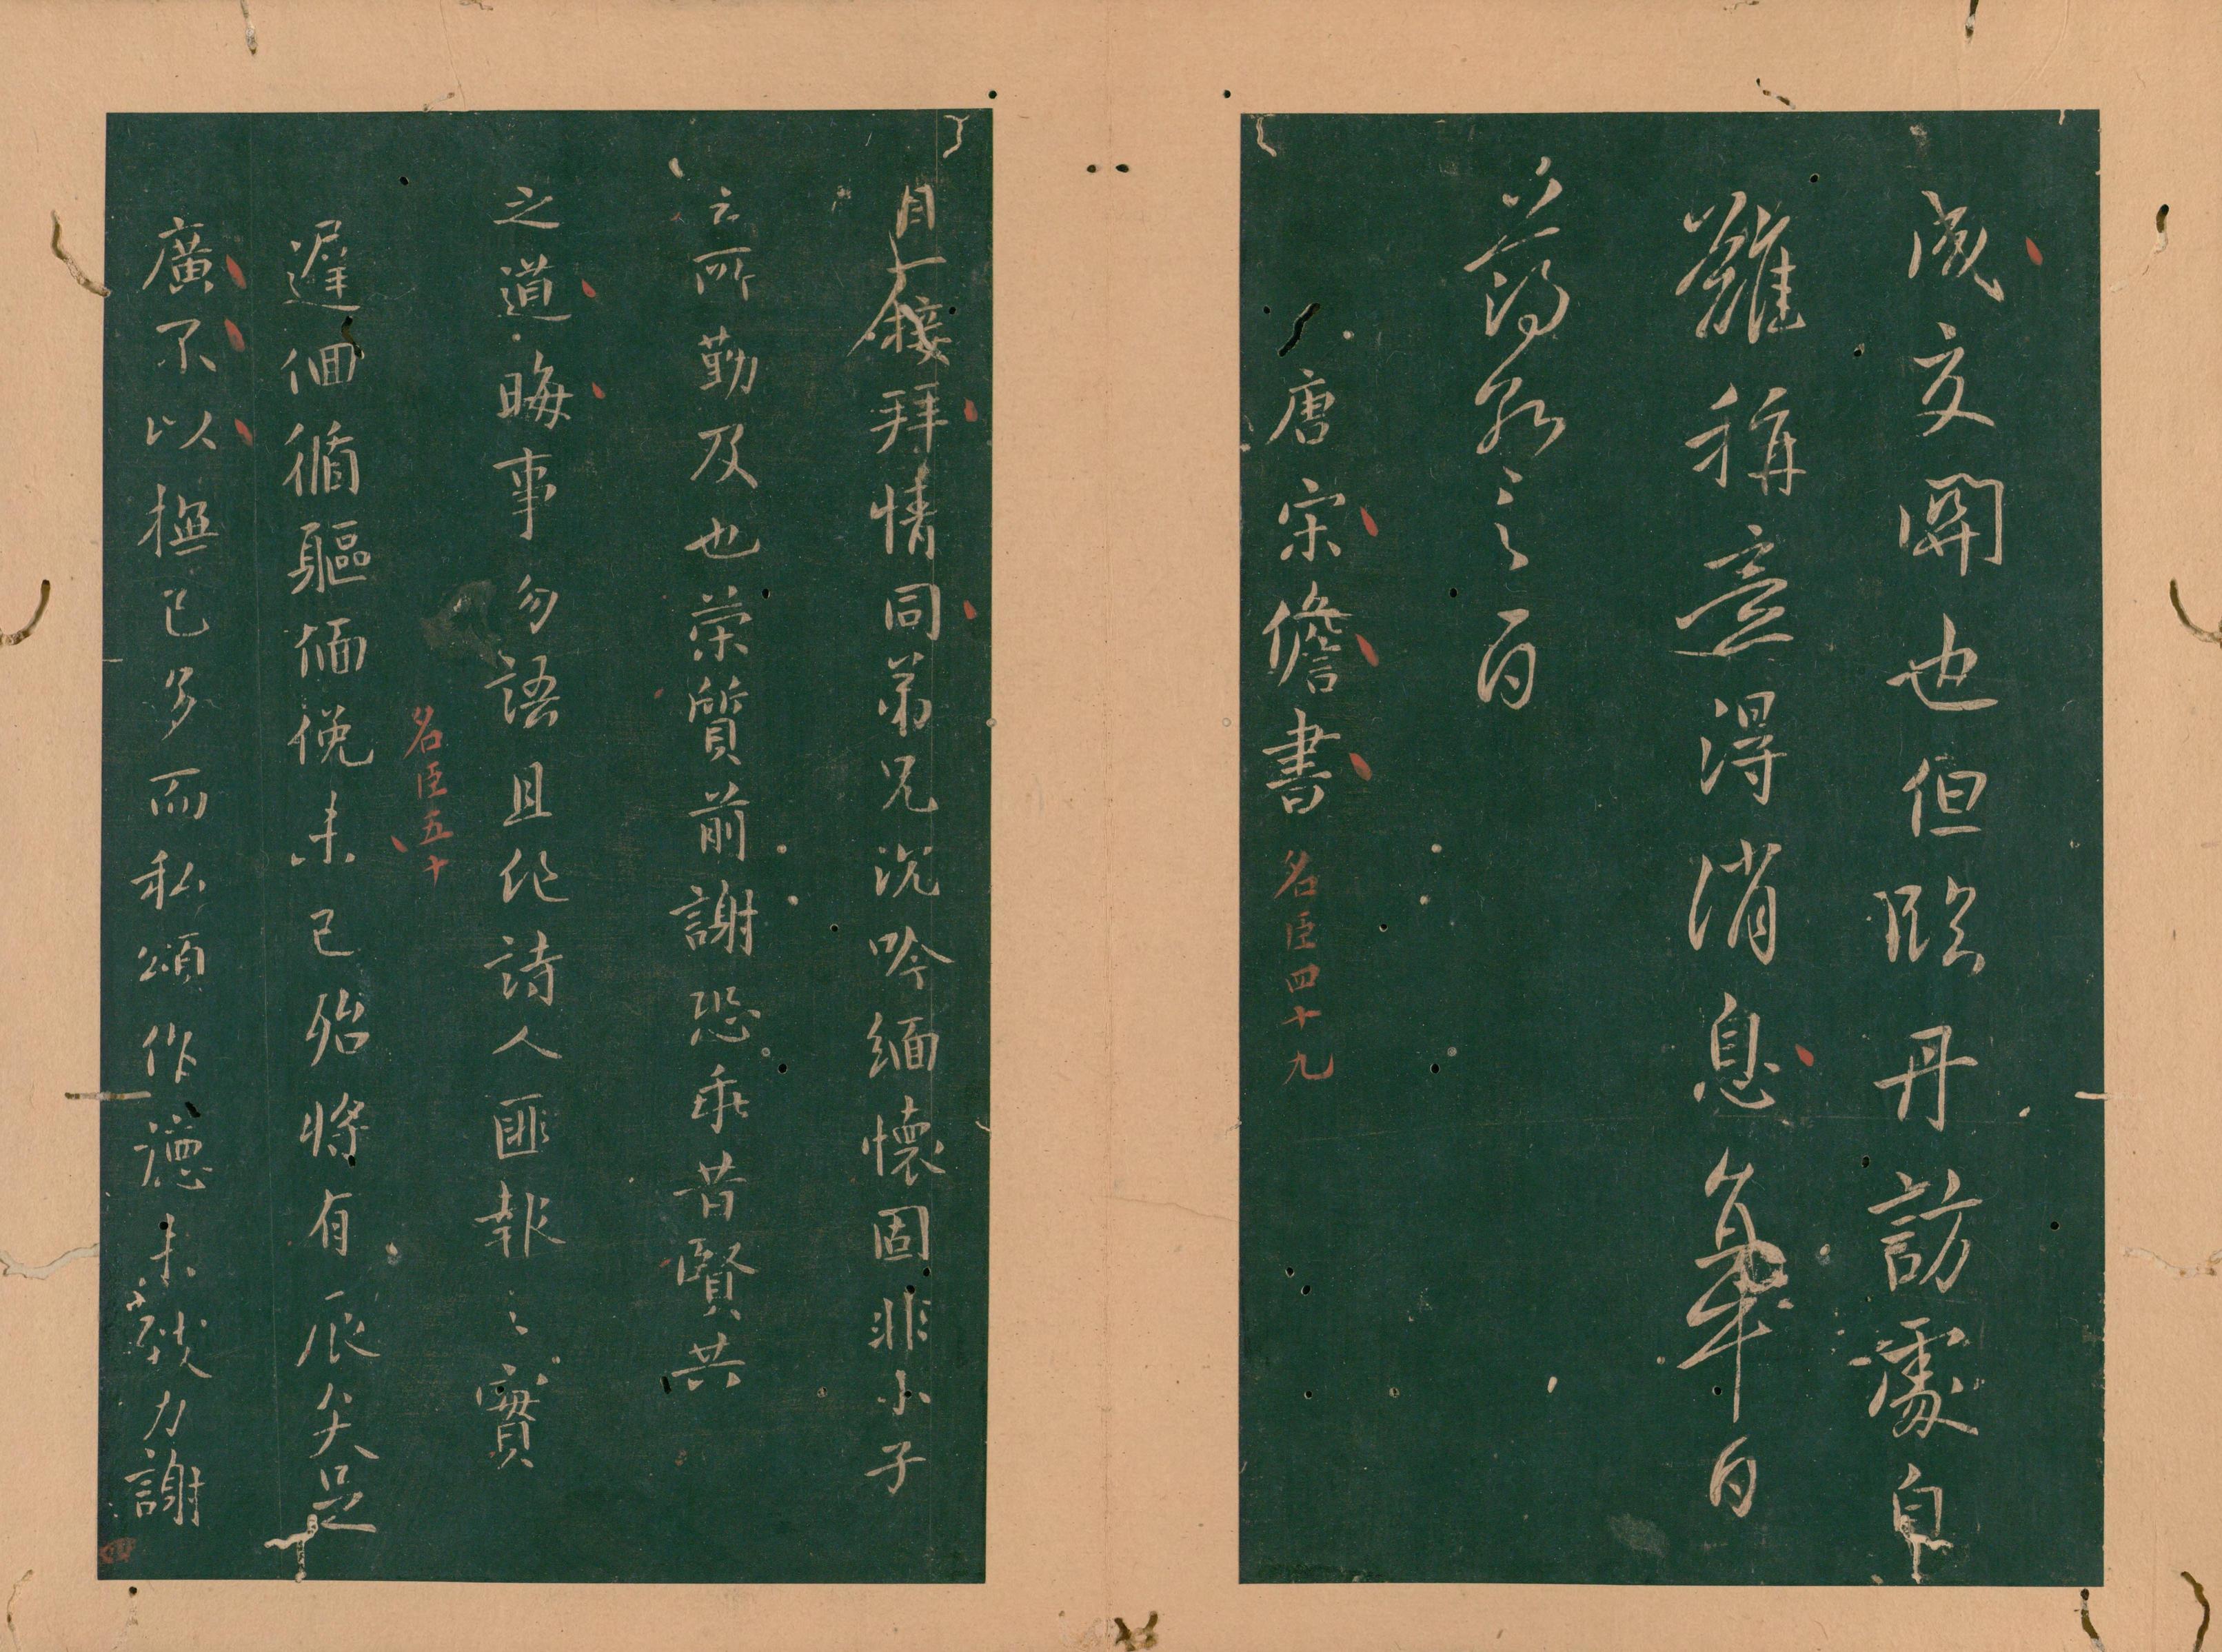 成交關也但臨丹訪處自
難稱意得消息矣華白
唐宋儋書
名臣四十九
自接拜情同弟兄沉吟緬懷固非小子
之所勤及也榮質前謝恐乖昔賢共
之道晦事勿語且作詩人匪報〻實
名臣五十
遲佪循軀僶俛未已殆將有辰矣足
廣不以撫已多而私頌作德未致力謝